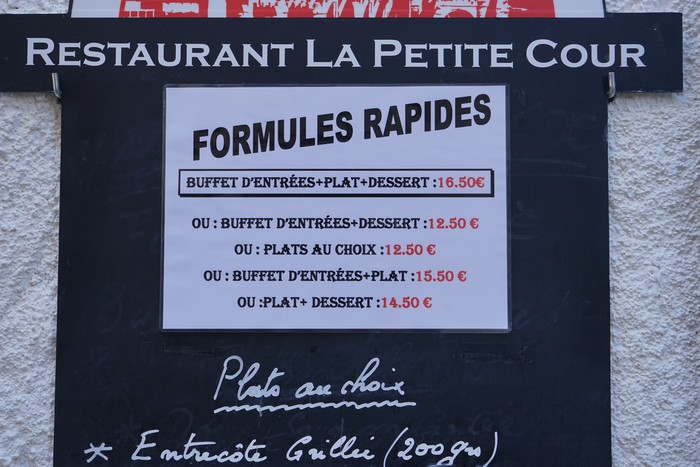 RESTAURANT LA PETITE COUR
FORMULES RAPIDES
BUFFET D'ENTRÉES+PLAT+DESSERT :16.50€
OU : BUFFET D'ENTRÉES+DESSERT :12.50 €
OU : PLATS AU CHOIX :12.50 €
OU : BUFFET D'ENTRÉES+PLAT :15.50 €
OU :PLAT+ DESSERT :14.50 €
Plats au choix
* Entrecôte Grillée (200grs)